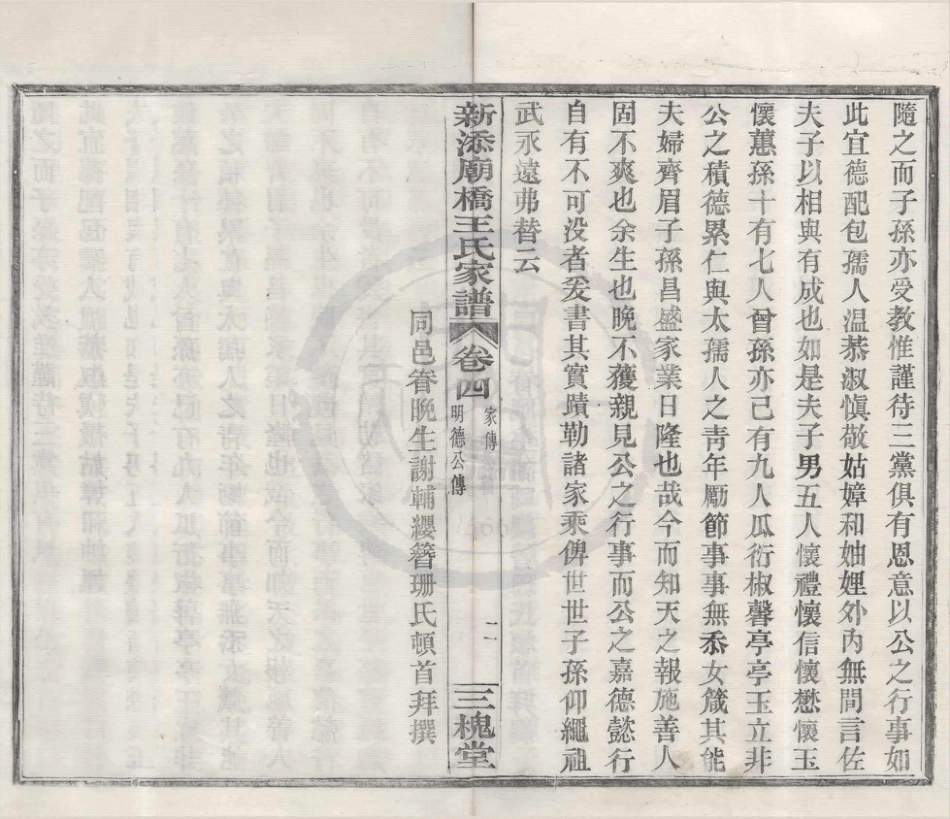 隨之而子孫亦受教惟謹待三黨俱有恩意以公之行事如
此宜德配包孺人温恭淑愼敬姑嫜和妯娌外内無間言佐
夫子以相與有成也如是夫子男五人懷禮懷信懷懋懷玉
懷蕙孫十有七人曾孫亦己有九人瓜衍椒馨亭亭玉立非
公之積德累仁與太孺人之靑年勵節事事無忝女箴其能
夫婦齊眉子孫昌盛家業日隆也哉今而知天之報施善人
固不爽也余生也晚不獲親見公之行事而公之嘉德懿行
自有不可没者爰書其實蹟勒諸家乘俾世世子孫仰繩祖
武永遠弗替云
同邑眷晚生謝輔纓簪珊氏頓首拜撰
新添廟橋王氏家譜
卷四
家傳
明德公傳
二
三槐堂